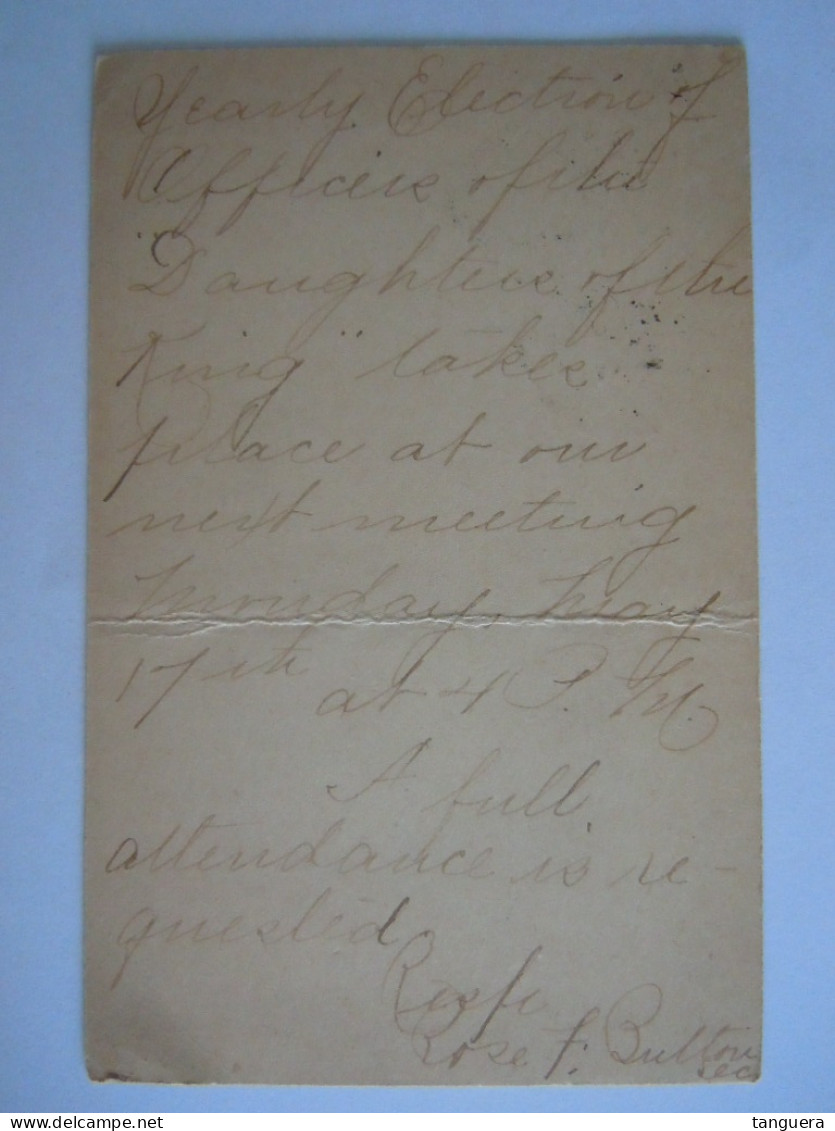 Yearly Election of
Officers of the
"Daughters of the
King" takes
place at our
next meeting
Monday, May
17th at 4 P. M.
A full
attendance is re-
quested
Respt
Rose F. Button
Sec
tanguera